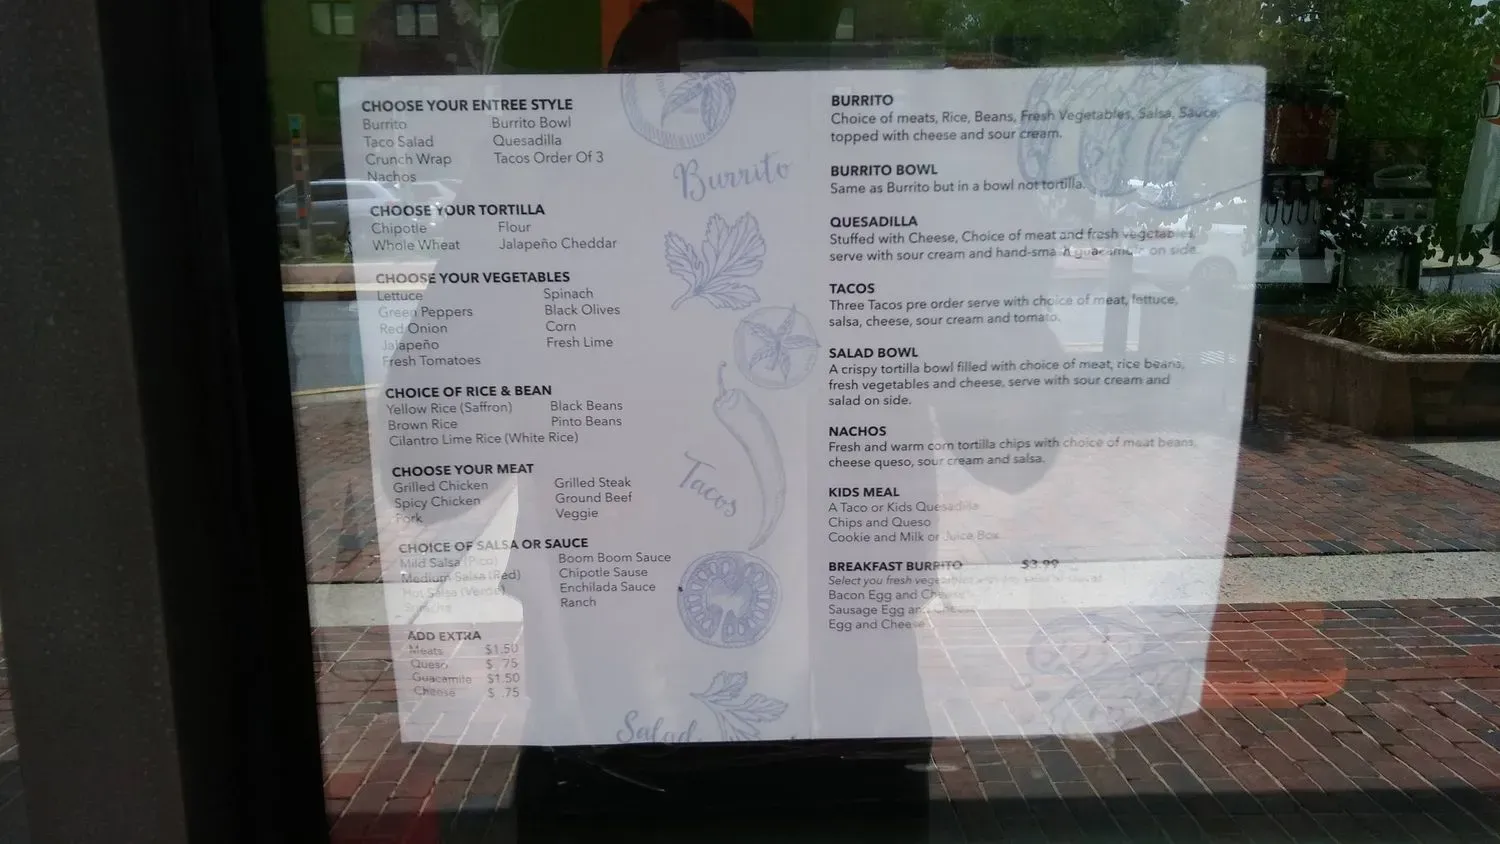 CHOOSE YOUR ENTREE STYLE
Burrito Burrito Bowl
Taco Salad Quesadilla
Crunch Wrap Tacos Order Of 3
Nachos
CHOOSE YOUR TORTILLA
Chipotle Flour
Whole Wheat Jalapeño Cheddar
CHOOSE YOUR VEGETABLES
Lettuce Spinach
Green Peppers Black Olives
Red Onion Corn
Jalapeño Fresh Lime
Fresh Tomatoes
CHOICE OF RICE & BEAN
Yellow Rice (Saffron) Black Beans
Brown Rice Pinto Beans
Cilantro Lime Rice (White Rice)
CHOOSE YOUR MEAT
Grilled Chicken Grilled Steak
Spicy Chicken Ground Beef
Pork Veggie
CHOICE OF SALSA OR SAUCE
Mild Salsa (Pico) Boom Boom Sauce
Medium Salsa (Red) Chipotle Sause
Hot Salsa (Verde) Enchilada Sauce
Ranch
ADD EXTRA
Meats $1.50
Queso $ .75
Guacamite $1.50
Cheese $ .75
Burrito
Tacos
Salad
BURRITO
Choice of meats, Rice, Beans, Fresh Vegetables, Salsa, Sauce,
topped with cheese and sour cream.
BURRITO BOWL
Same as Burrito but in a bowl not tortilla.
QUESADILLA
Stuffed with Cheese, Choice of meat and fresh vegetables,
serve with sour cream and on side.
TACOS
Three Tacos pre order serve with choice of meat, lettuce,
salsa, cheese, sour cream and tomato.
SALAD BOWL
A crispy tortilla bowl filled with choice of meat, rice beans,
fresh vegetables and cheese, serve with sour cream and
salad on side.
NACHOS
Fresh and warm corn tortilla chips with choice of meat beans,
cheese queso, sour cream and salsa.
KIDS MEAL
A Taco or Kids Quesadilla
Chips and Queso
Cookie and Milk or Juice Box
BREAKFAST BURRITO $3.99
Select you fresh
Bacon Egg and Cheese
Sausage Egg and Cheese
Egg and Cheese